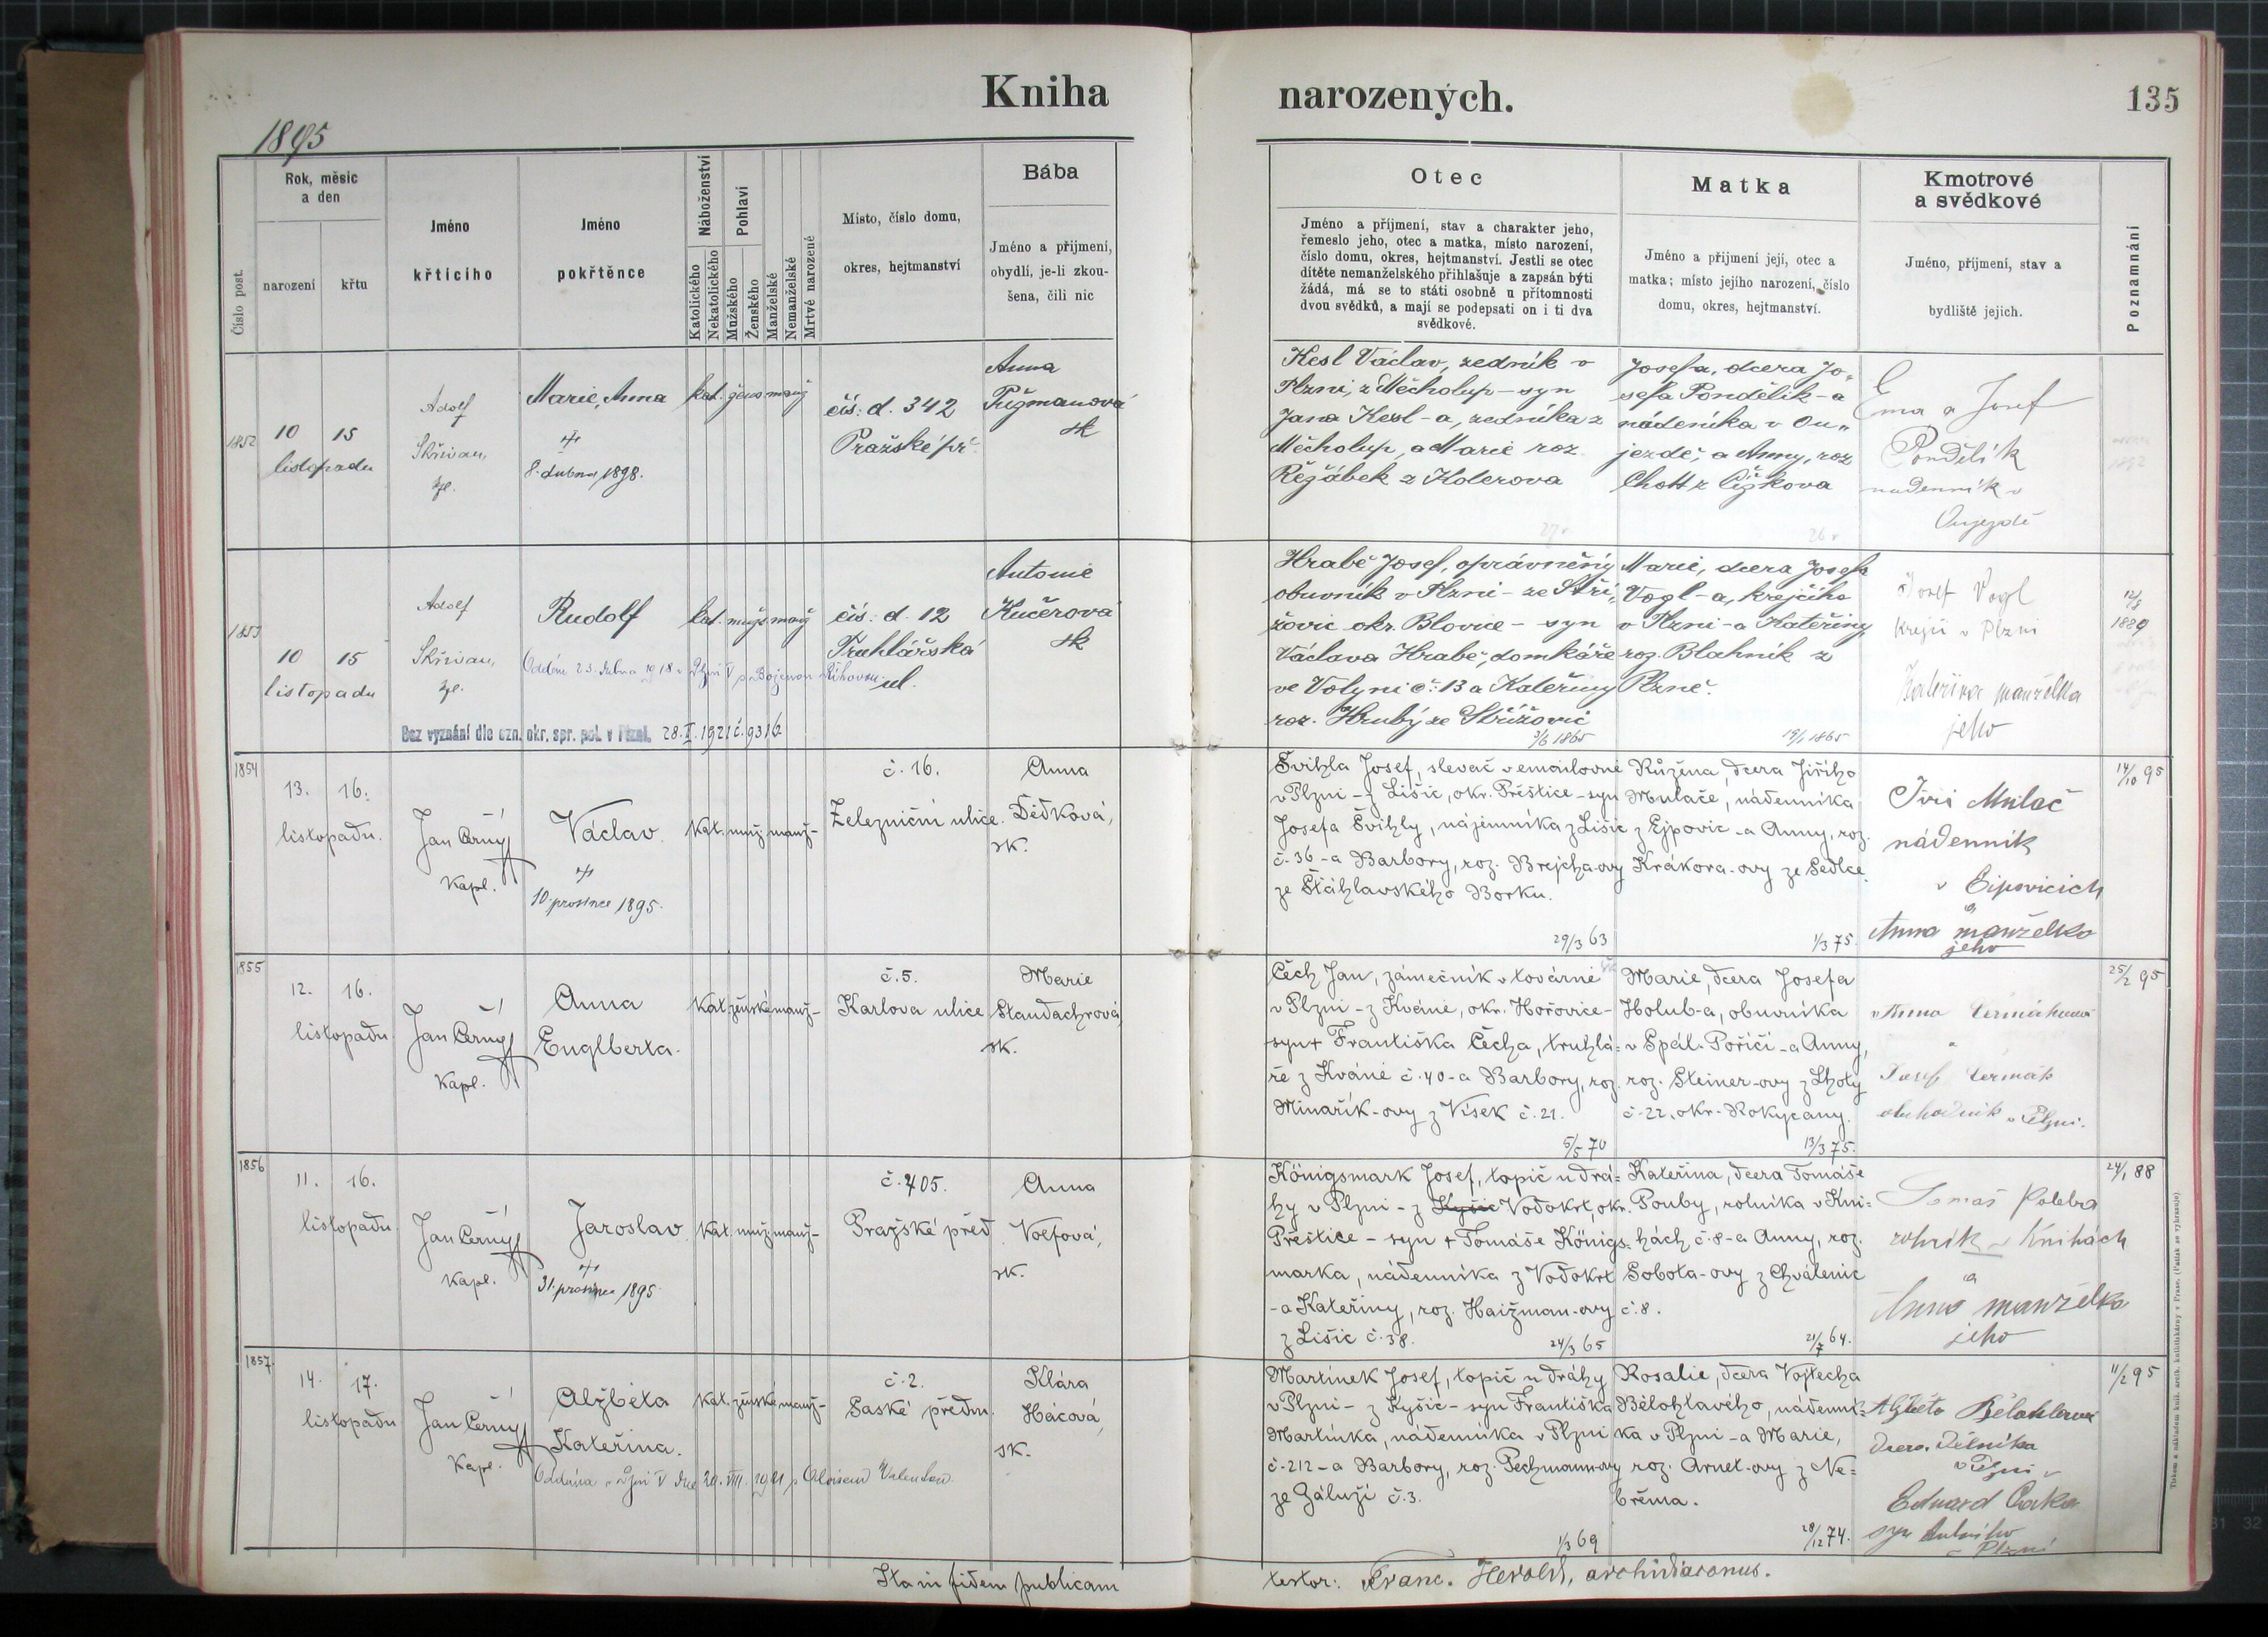 Kniha narozených.
135
1895
Číslo post.
Rok, měsíc
a den
narození
křtu
Jméno
křticího
Jméno
pokřtěnce
Náboženství
Katolického
Nekatolického
Pohlaví
Mužského
Ženského
Manželské
Nemanželské
Mrtvě narozené
Místo, číslo domu,
okres, hejtmanství
Bába
Jméno a přijmení,
obydlí, je-li zkou-
šena, čili nic
Otec
Jméno a příjmení, stav a charakter jeho,
řemeslo jeho, otec a matka, místo narození,
číslo domu, okres, hejtmanství. Jestli se otec
dítěte nemanželského přihlašuje a zapsán býti
žádá, má se to státi osobně u přítomnosti
dvou svědků, a mají se podepsati on i ti dva
svědkové.
Matka
Jméno a přijmení její, otec a
matka; místo jejího narození, číslo
domu, okres, hejtmanství.
Kmotrové
a svědkové
Jméno, příjmení, stav a
bydliště jejich.
Poznamnání
1852
10 15
listopadu
Adolf
Skřivan,
kpl.
Marie, Anna
8. dubna 1898.
kat. žens manž
čís: d. 342
Pražské př
Anna
Tužmanová
zk
Kesl Václav, zedník v
Plzni, z Měcholup - syn
Jana Kesl-a, zedníka z
Měcholup, a Marie roz.
Řežábek z Kolerova
Josefa, dcera Jo-
sefa Pondělík-a
nádeníka v Ou-
jezdě a Anny, roz
Chott z Čížkova
Ema a Josef
Pondělík
nadenník v
Oujezdě
1853
10 15
listopadu
Adolf
Skřivan,
kpl.
Rudolf
Oddán 23. dubna 1918 v Plzni V s Boženou Říhovou
Bez vyznání dle ozn. okr. spr. pol. v Plzni. 28.I.1921 č. 9316
kat. mužs manž
čís: d. 12
Truhlářská
ul.
Antonie
Kučerová
zk
Hrabě Josef, oprávněný
obuvník v Plzni - ze Stří-
žovic okr. Blovice - syn
Václava Hrabě, domkáře
ve Volyni č: 13 a Kateřiny
roz. Hrubý ze Střížovic
3/6 1865
Marie, dcera Josefa
Vogl-a, krejčího
v Plzni - a Kateřiny
roz. Blahník z
Plzně.
19/1 1865
Josef Vogl
krejčí v Plzni
Kateřina manželka
jeho
12/8
1889
1854
13. 16.
listopadu.
Jan Černý
kapl.
Václav
10. prosince 1895.
Kat. muž manž-
č. 16.
Železniční ulice.
Anna
Dědková,
zk.
Švihla Josef, slevač v emailovně
v Plzni - z Lišic, okr. Přeštice - syn
Josefa Švihly, nájemníka z Lišic
č. 36 - a Barbory, roz. Brejcha-ovy
ze Šťáhlavského Borku.
29/3 63
Růžena, dcera Jiřího
Mulače, nádenníka
z Ejpovic - a Anny, roz.
Krákora-ovy ze Sedlce.
1/3 75.
Jiří Mulač
nádenník
v Eipovicích
a
Anna manželka
jeho
14/10 95
1855
12. 16.
listopadu
Jan Černý
kapl.
Anna
Englberta.
Kat. ženské manž-
č. 5.
Karlova ulice
Marie
Staudachrová,
zk.
Čech Jan, zámečník v továrně
v Plzni - z Kváně, okr. Hořovice -
syn + Františka Čecha, truhlá-
ře z Kváně č. 40 - a Barbory, roz.
Minařík-ovy z Vísek č. 21.
5/5 70
Marie, dcera Josefa
Holub-a, obuvníka
v Spál. Poříčí - a Anny,
roz. Steiner-ovy z Lhoty
č. 22, okr. Rokycany.
13/3 75.
Anna Čermáková
a
Josef Čermák
obchodník v Plzni.
25/2 95
1856
11. 16.
listopadu
Jan Černý
kapl.
Jaroslav
31. prosince 1895.
Kat. muž manž-
č. 405.
Pražské před
Anna
Voefová,
zk.
Königsmark Josef, topič u drá-
hy v Plzni - z Kyšic Vodokrt, okr.
Přeštice - syn + Tomáše Königs-
marka, nádenníka z Vodokrt
- a Kateřiny, roz. Haižman-ovy
z Lišic č. 38.
24/3 65
Kateřina, dcera Tomáše
Pouby, rolníka v Kni-
hách č. 8 - a Anny, roz.
Sobota-ovy z Chválenic
č. 8.
21/7 64.
Tomáš
rolník v Knihách
a
Anna manželka
jeho
24/1 88
1857
14. 17.
listopadu
Jan Černý
kapl.
Alžběta
Kateřina.
Oddána v Plzni V dne 20. VIII. 1921 s Aloisem
Kat. ženské manž-
č. 2.
Saské předm.
Klára
Hácová,
zk.
Martínek Josef, topič u dráhy
v Plzni - z Kyšic - syn Františka
Martínka, nádenníka v Plzni
č. 212 - a Barbory, roz. Pechmann-ovy
ze Záluží č. 3.
1/3 69
Rosalie, dcera Vojtěcha
Bělohlavého, nádenní-
ka v Plzni - a Marie,
roz. Arnet-ovy z Ne-
břema.
28/12 74.
Alžběta Bělohlavá
dcera dělníka
v Plzni
Eduard
syn
v Plzni
11/2 95
Ita in fidem publicam
testor: Franc. Herold, archidiaconus.